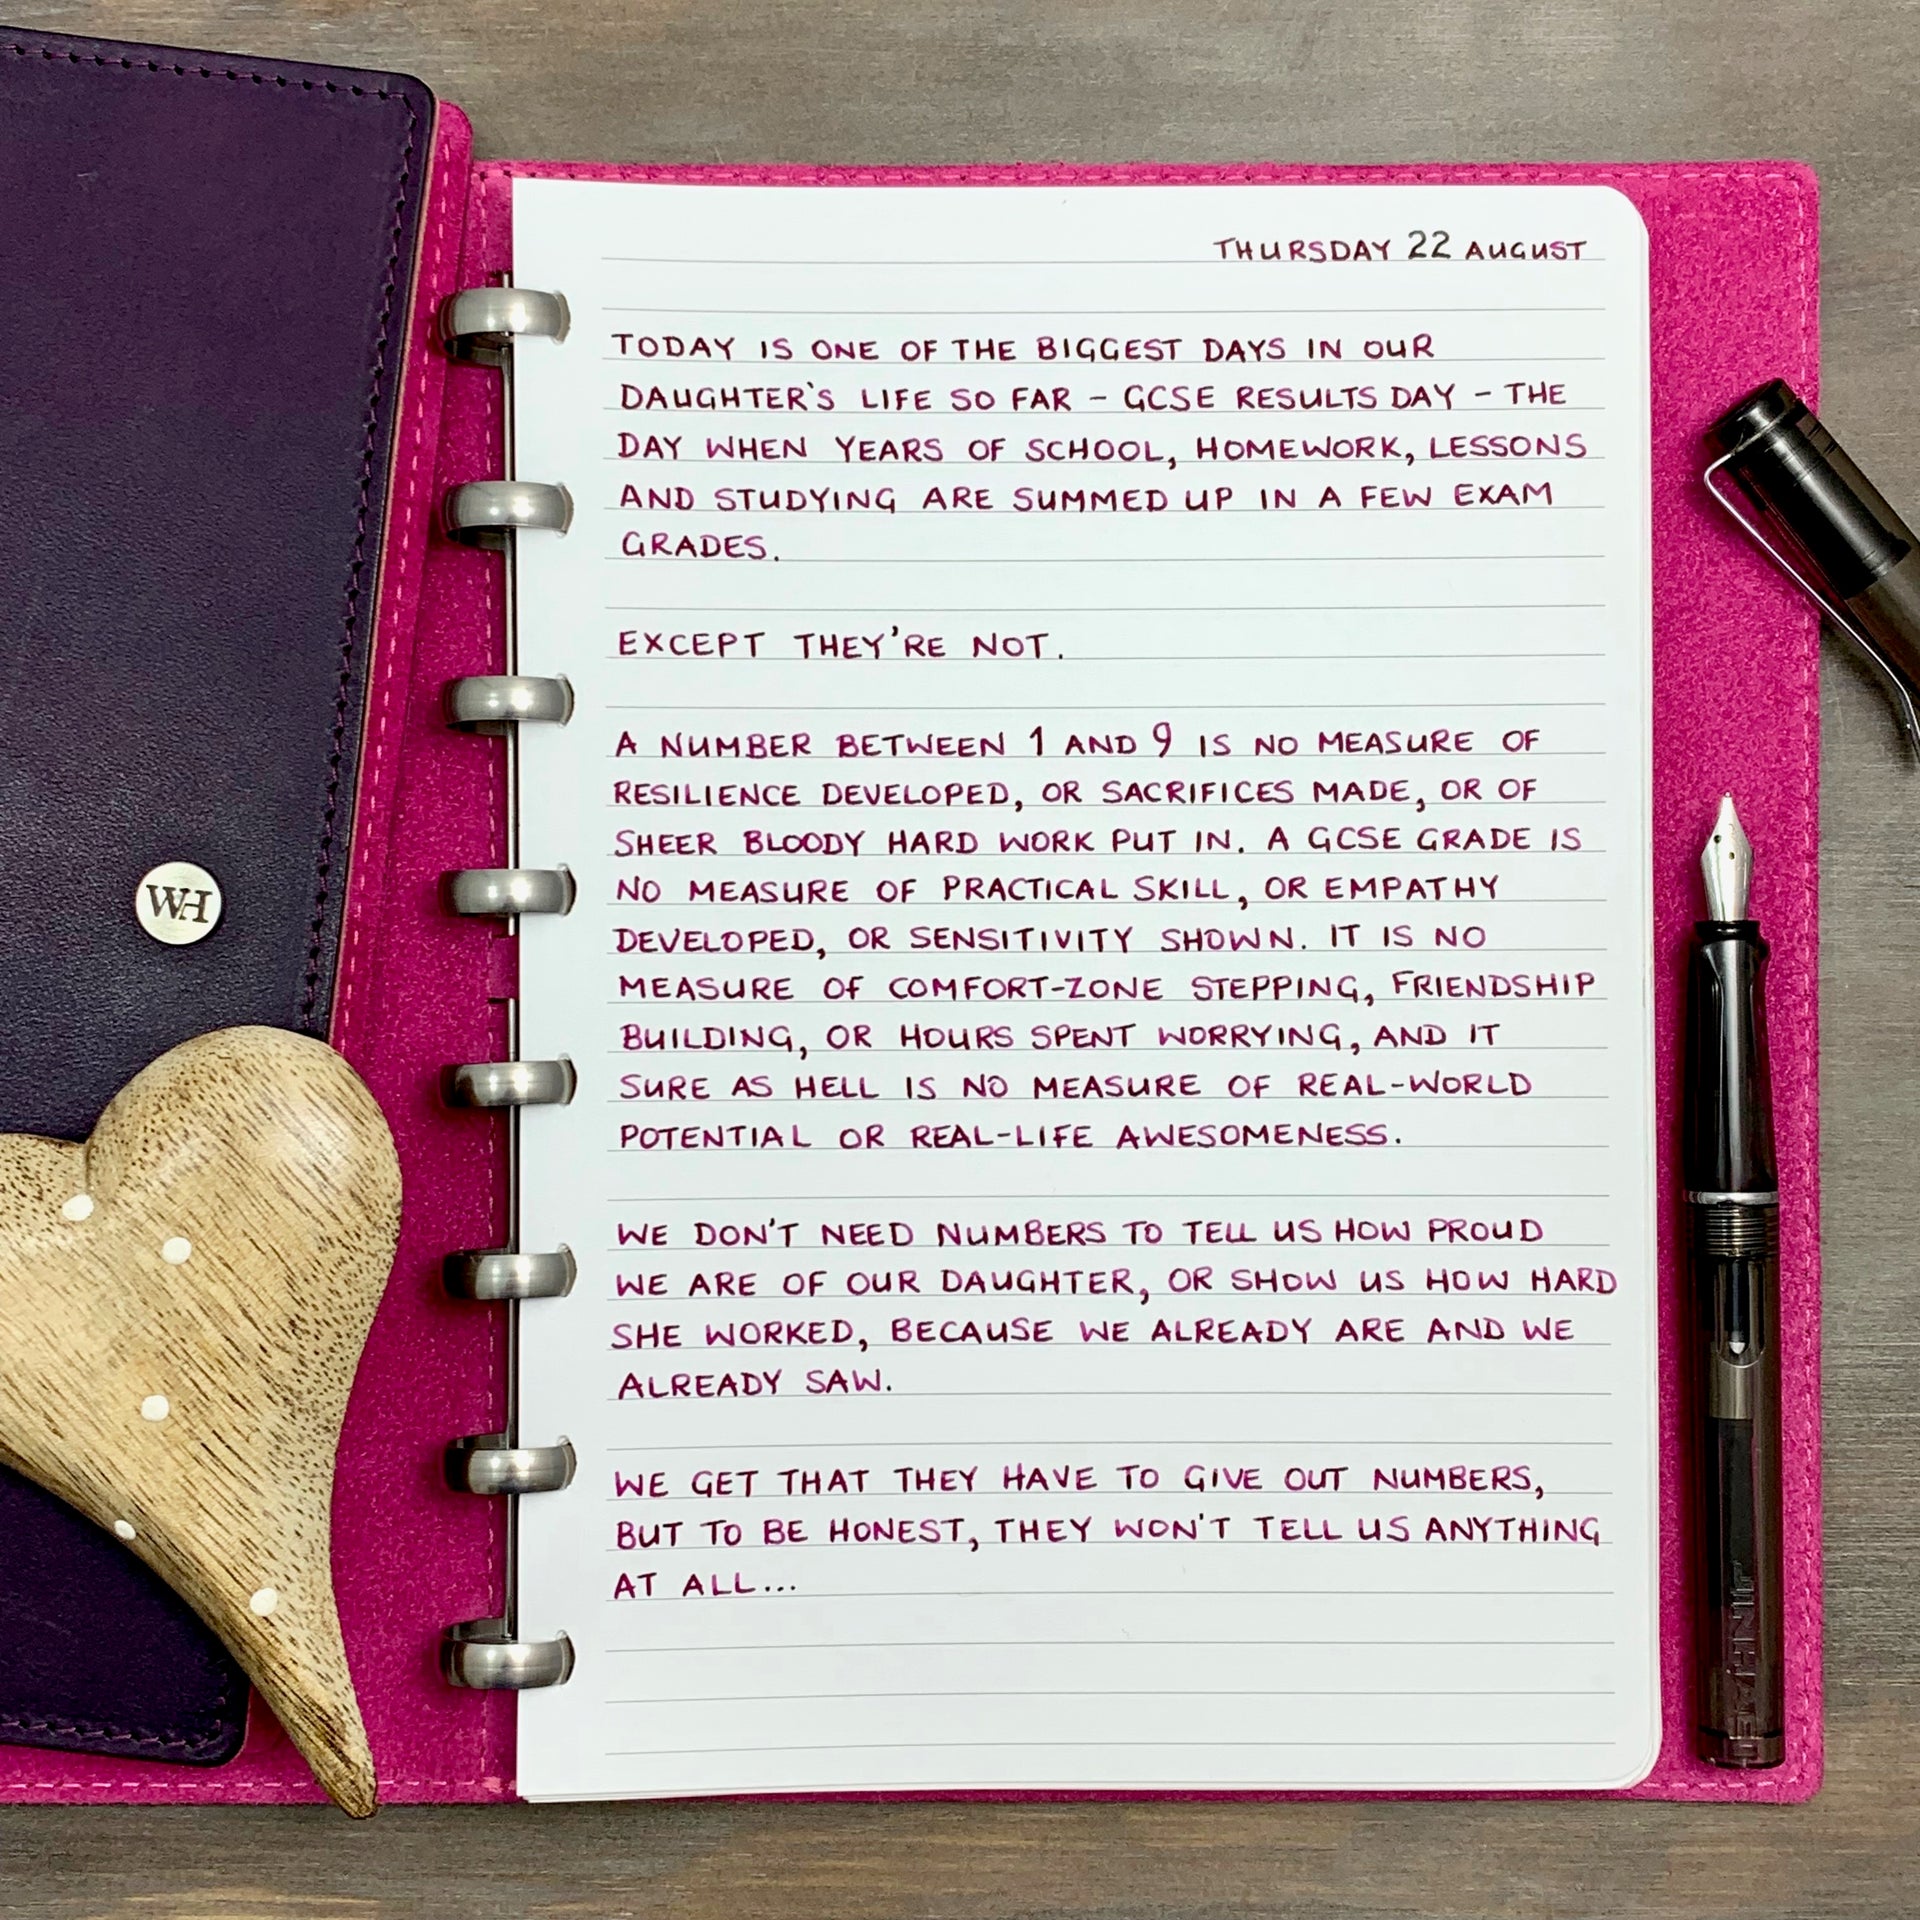 THURSDAY 22 AUGUST
TODAY IS ONE OF THE BIGGEST DAYS IN OUR
DAUGHTER'S LIFE SO FAR - GCSE RESULTS DAY - THE
DAY WHEN YEARS OF SCHOOL, HOMEWORK, LESSONS
AND STUDYING ARE SUMMED UP IN A FEW EXAM
GRADES.
EXCEPT THEY'RE NOT.
A NUMBER BETWEEN 1 AND 9 IS NO MEASURE OF
RESILIENCE DEVELOPED, OR SACRIFICES MADE, OR OF
SHEER BLOODY HARD WORK PUT IN. A GCSE GRADE IS
NO MEASURE OF PRACTICAL SKILL, OR EMPATHY
DEVELOPED, OR SENSITIVITY SHOWN. IT IS NO
MEASURE OF COMFORT-ZONE STEPPING, FRIENDSHIP
BUILDING, OR HOURS SPENT WORRYING, AND IT
SURE AS HELL IS NO MEASURE OF REAL-WORLD
POTENTIAL OR REAL-LIFE AWESOMENESS.
WE DON'T NEED NUMBERS TO TELL US HOW PROUD
WE ARE OF OUR DAUGHTER, OR SHOW US HOW HARD
SHE WORKED, BECAUSE WE ALREADY ARE AND WE
ALREADY SAW.
WE GET THAT THEY HAVE TO GIVE OUT NUMBERS,
BUT TO BE HONEST, THEY WON'T TELL US ANYTHING
AT ALL...
WH
JINHAO